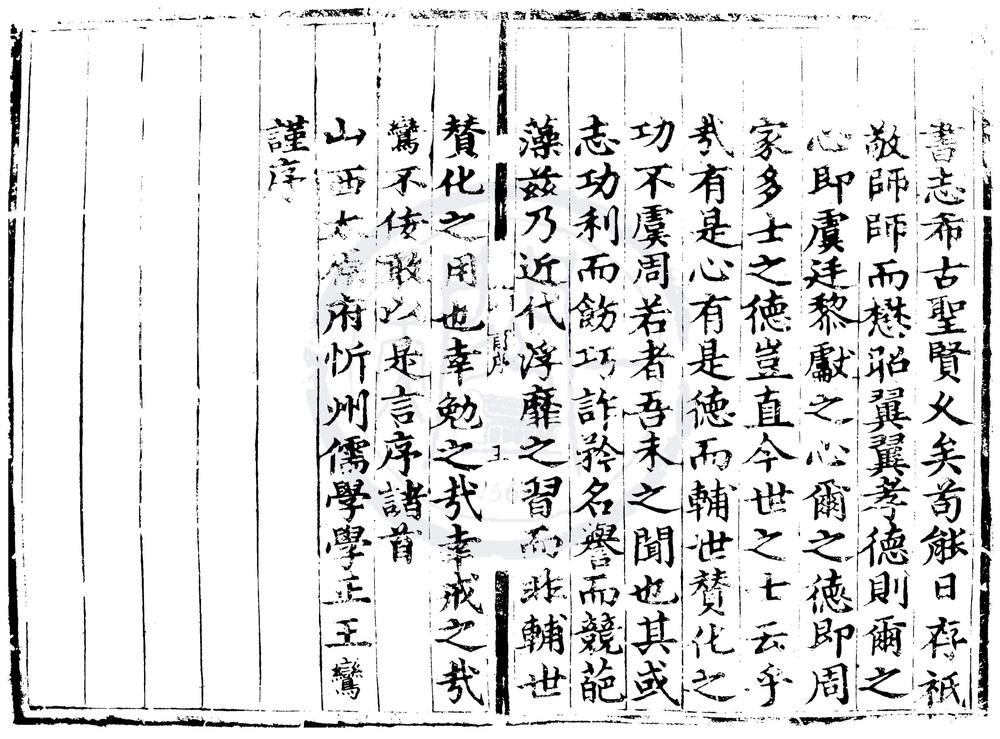 書志希古聖賢久矣苟能日存祇
敬師師而懋昭翼翼孝德則爾之
心即虞廷黎獻之心爾之德即周
家多士之德豈直今世之士云乎
㢤有是心有是德而輔世賛化之
功不虞周若者吾未之聞也其或
志功利而飭巧詐矜名譽而競葩
藻兹乃近代浮靡之習而非輔世
賛化之用也幸勉之㢤幸戒之㢤
鸞不佞敢以是言序諸首
山西太原府忻州儒學學正王鸞
謹序